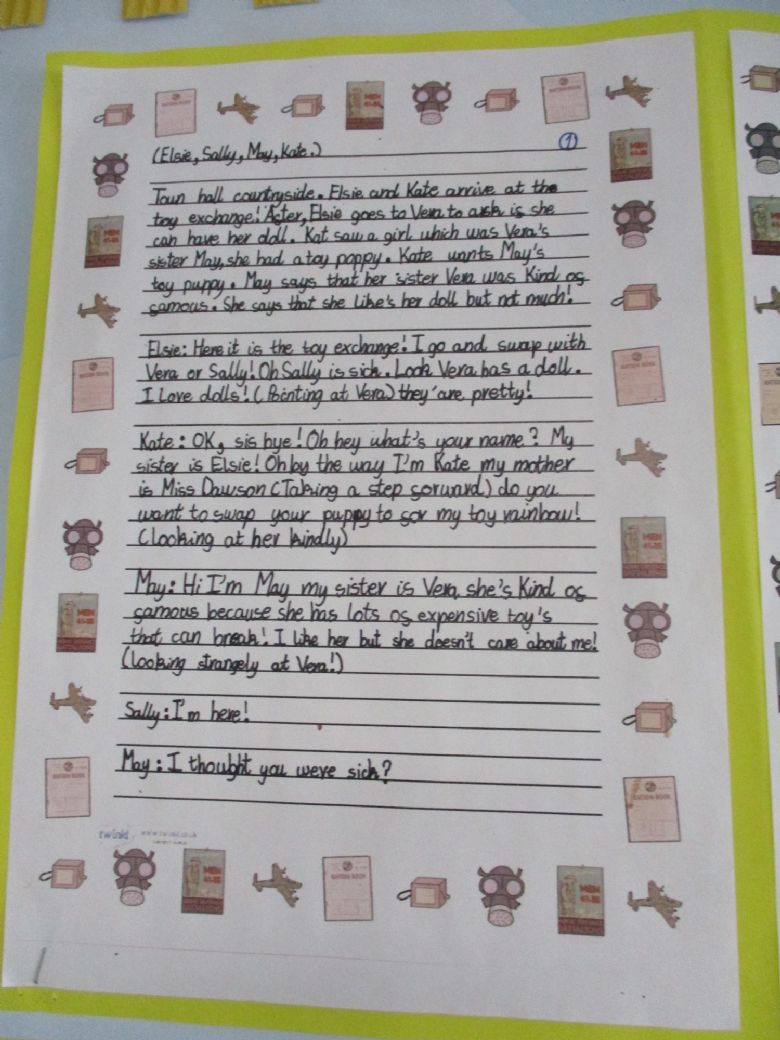 (Elsie, Sally, May, Kate.)
1
Toun hall countryside. Elsie and Kate arrive at the
toy exchange! After, Elsie goes to Vera to ask if she
can have her doll. Kat saw a girl which was Vera's
sister May, she had a toy poppy. Kate wants May's
toy puppy. May says that her sister Vera was Kind of
famous. She says that she like's her doll but not much!
Elsie: Here it is the toy exchange! I go and swap with
Vera or Sally! Oh Sally is sick. Look Vera has a doll.
I Love dolls! (Pointing at Vera) they'are pretty!
Kate: OK, sis bye! Oh hey what's your name? My
sister is Elsie! Oh by the way I'm Kate my mother
is Miss Dawson (Taking a step forward) do you
want to swap your puppy to for my toy rainbow!
(looking at her kindly)
May: Hi I'm May my sister is Vera she's Kind of
famous because she has lots of expensive toy's
that can break! I like her but she doesn't care about me!
(looking strangely at Vera!)
Sally: I'm here!
May: I thought you were sick?
twinkl www.twinkl.co.uk
RATION BOOK
MEN
41-55